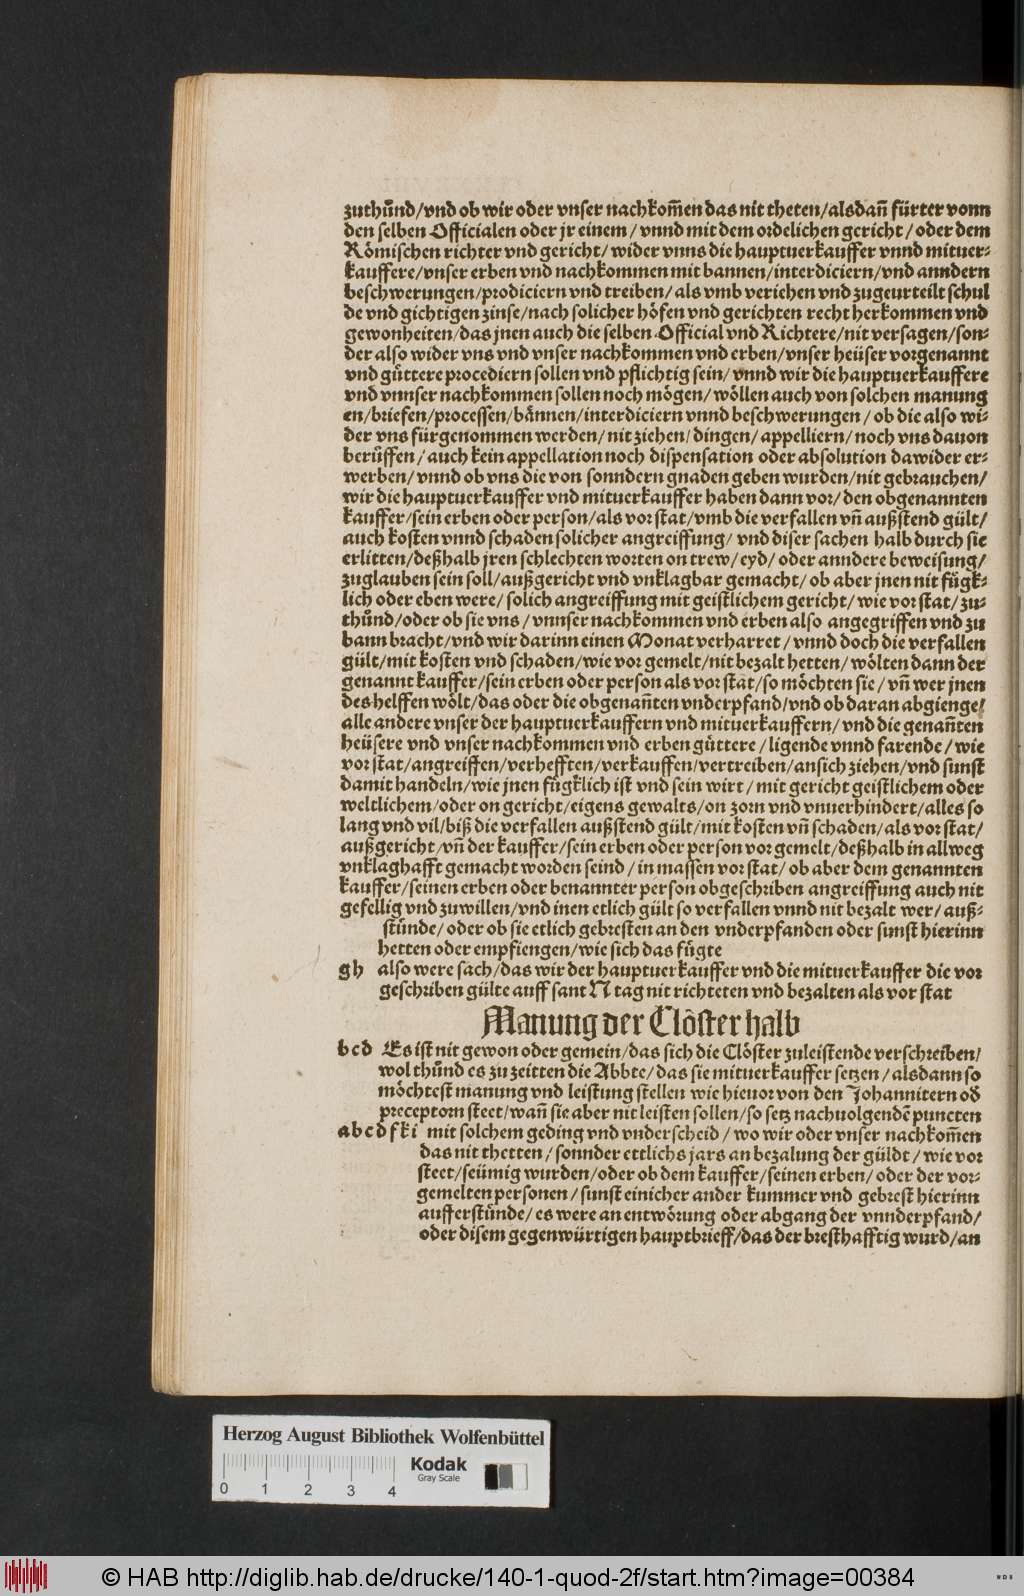 zuthůnd/vnd ob wir oder vnser nachkom̃en das nit theten/alsdañ fürter vonn
den selben Officialen oder jr einem/vnnd mit dem ordelichen gericht/oder dem
Römischen richter vnd gericht/wider vnns die hauptuerkauffer vnnd mituer⸗
kauffere/vnser erben vnd nachkommen mit bannen/interdiciern/vnd anndern
beschwerungen/prodiciern vnd treiben/als vmb veriehen vnd zugeurteilt schul
de vnd gichtigen zinse/nach solicher höfen vnd gerichten recht herkommen vnd
gewonheiten/das jnen auch die selben Official vnd Richtere/nit versagen/son⸗
der also wider vns vnd vnser nachkommen vnd erben/vnser heüser vorgenannt
vnd gůttere procediern sollen vnd pflichtig sein/vnnd wir die hauptuerkauffere
vnd vnnser nachkommen sollen noch mögen/wöllen auch von solchen manung
en/briefen/processen/bännen/interdiciern vnnd beschwerungen/ob die also wi⸗
der vns fürgenommen werden/nit ziehen/dingen/appelliern/noch vns dauon
berůffen/auch kein appellation noch dispensation oder absolution dawider er⸗
werben/vnnd ob vns die von sonndern gnaden geben wurden/nit gebrauchen/
wir die hauptuerkauffer vnd mituerkauffer haben dann vor/den obgenannten
kauffer/sein erben oder person/als vor stat/vmb die verfallen vñ außstend gült/
auch kosten vnnd schaden solicher angreiffung/vnd diser sachen halb durch sie
erlitten/deßhalb jren schlechten worten on trew/eyd/oder anndere beweisung/
zuglauben sein soll/außgericht vnd vnklagbar gemacht/ob aber jnen nit fůgk⸗
lich oder eben were/solich angreiffung mit geistlichem gericht/wie vor stat/zu⸗
thůnd/oder ob sie vns/vnnser nachkommen vnd erben also angegriffen vnd zu
bann bracht/vnd wir darinn einen Monat verharret/vnnd doch die verfallen
gült/mit kosten vnd schaden/wie vor gemelt/nit bezalt hetten/wölten dann der
genannt kauffer/sein erben oder person als vor stat/so möchten sie/vñ wer jnen
des helffen wölt/das oder die obgenañten vnderpfand/vnd ob daran abgienge/
alle andere vnser der hauptuerkauffern vnd mituerkauffern/vnd die genañten
heüsere vnd vnser nachkommen vnd erben gůttere/ligende vnnd farende/wie
vor stat/angreiffen/verhefften/verkauffen/vertreiben/an sich ziehen/vnd sunst
damit handeln/wie jnen fůgklich ist vnd sein wirt/mit gericht geistlichem oder
weltlichem/oder on gericht/eigens gewalts/on zorn vnd vnuerhindert/alles so
lang vnd vil/biß die verfallen außstend gült/mit kosten vñ schaden/als vor stat/
außgericht/vñ der kauffer/sein erben oder person vor gemelt/deßhalb in allweg
vnklaghafft gemacht worden seind/in massen vor stat/ob aber dem genannten
kauffer/seinen erben oder benannter person obgeschriben angreiffung auch nit
gefellig vnd zuwillen/vnd inen etlich gült so verfallen vnnd nit bezalt wer/auß⸗
stünde/oder ob sie etlich gebresten an den vnderpfanden oder sunst hierinn
hetten oder empfiengen/wie sich das fůgte
gh also were sach/das wir der hauptuerkauffer vnd die mituerkauffer die vor
geschriben gülte auff sant N tag nit richteten vnd bezalten als vor stat
Manung der Clöster halb
bcd Es ist nit gewon oder gemein/das sich die Clöster zuleistende verschreiben/
wol thůnd es zu zeitten die Abbte/das sie mituerkauffer setzen/alsdann so
möchtest manung vnd leistung stellen wie hieuor von den Johannitern od̄
preceptorn steet/wañ sie aber nit leisten sollen/so setz nachuolgendē puncten
abcdfki mit solchem geding vnd vnderscheid/wo wir oder vnser nachkom̃en
das nit thetten/sonnder ettlichs jars an bezalung der güldt/wie vor
steet/seümig wurden/oder ob dem kauffer/seinen erben/oder der vor⸗
gemelten personen/sunst einicher ander kummer vnd gebrest hierinn
aufferstünde/es were an entwörung oder abgang der vnnderpfand/
oder disem gegenwürtigen hauptbrieff/das der bresthafftig wurd/an
Herzog August Bibliothek Wolfenbüttel
Kodak
Gray Scale
0 1 2 3 4
© HAB http://diglib.hab.de/drucke/140-1-quod-2f/start.htm?image=00384